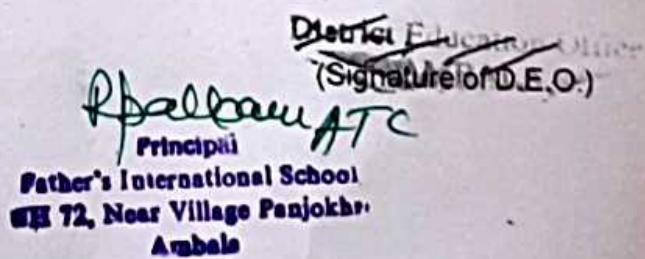 District Education Officer
(Signature of D.E.O.)
ATC
Principal
Father's International School
NH 72, Near Village Panjokhra
Ambala